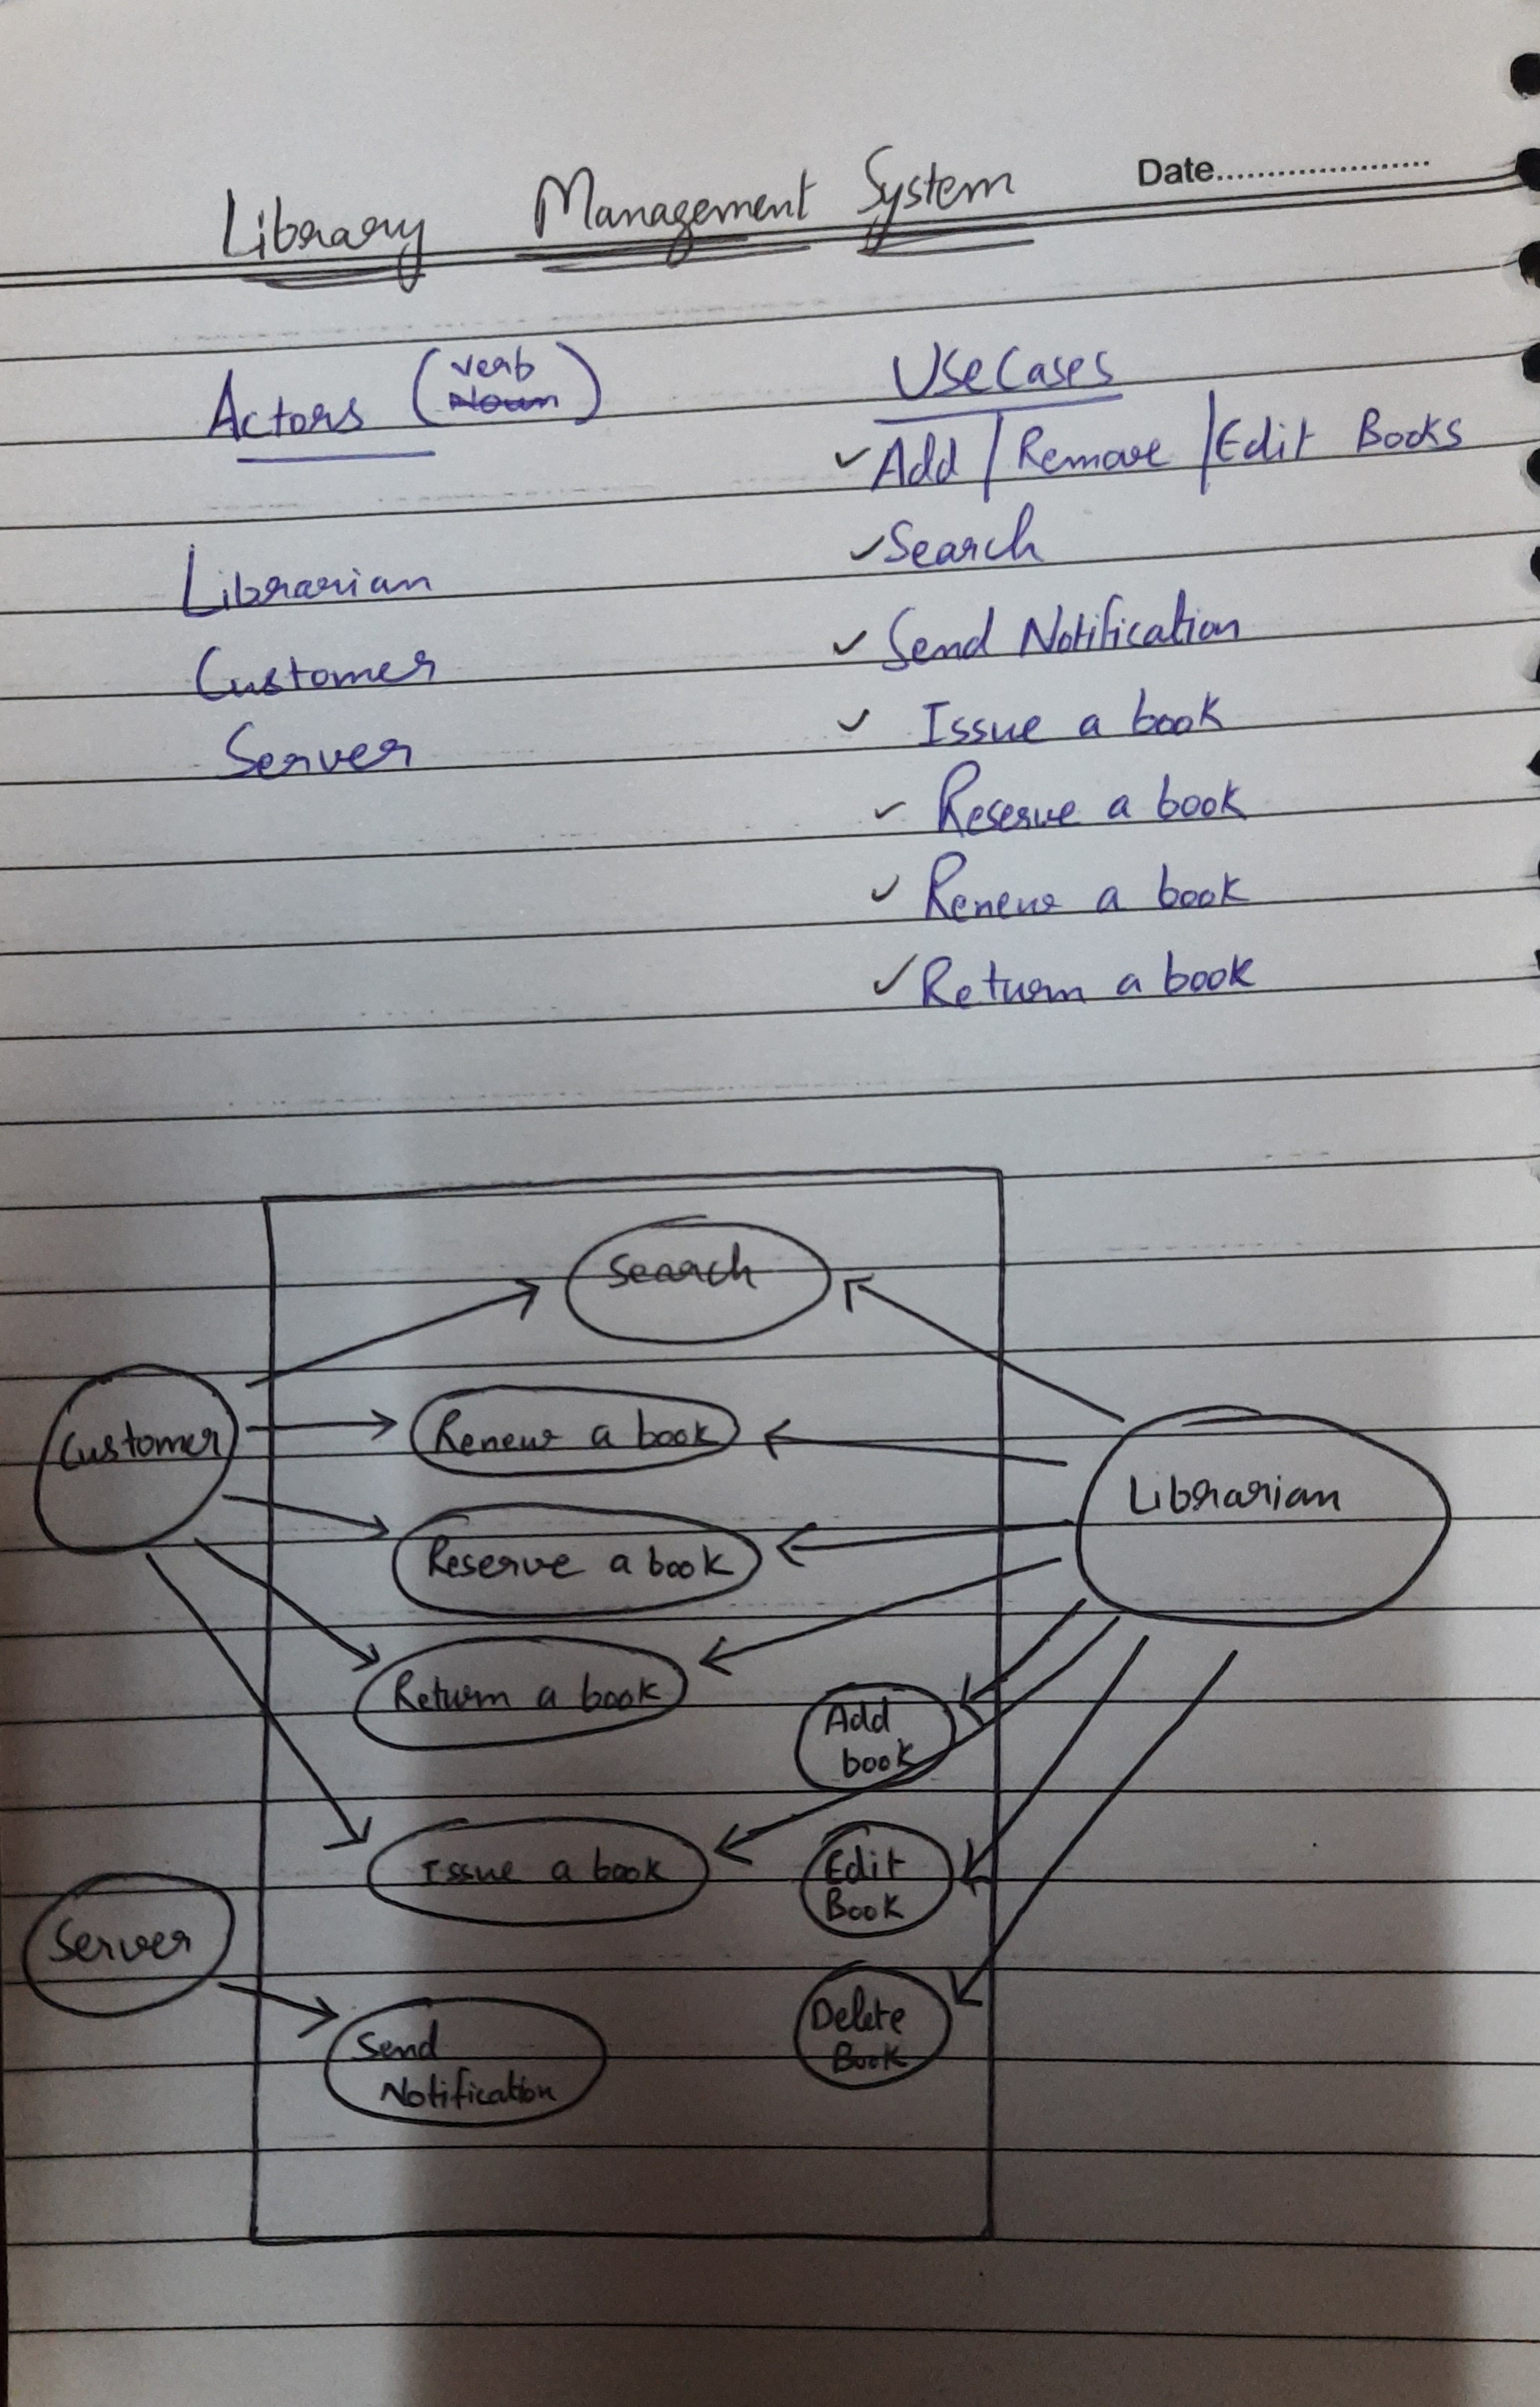 Library Management System
Date.....................
Actors (verb Noun)
Librarian
Customer
Server
UseCases
✓Add / Remove / Edit Books
✓Search
✓ Send Notification
✓ Issue a book
✓ Reserve a book
✓ Renew a book
✓Return a book
Search
Customer
Renew a book
Librarian
Reserve a book
Return a book
Add
book
Issue a book
Edit
Book
Server
Send
Notification
Delete
Book